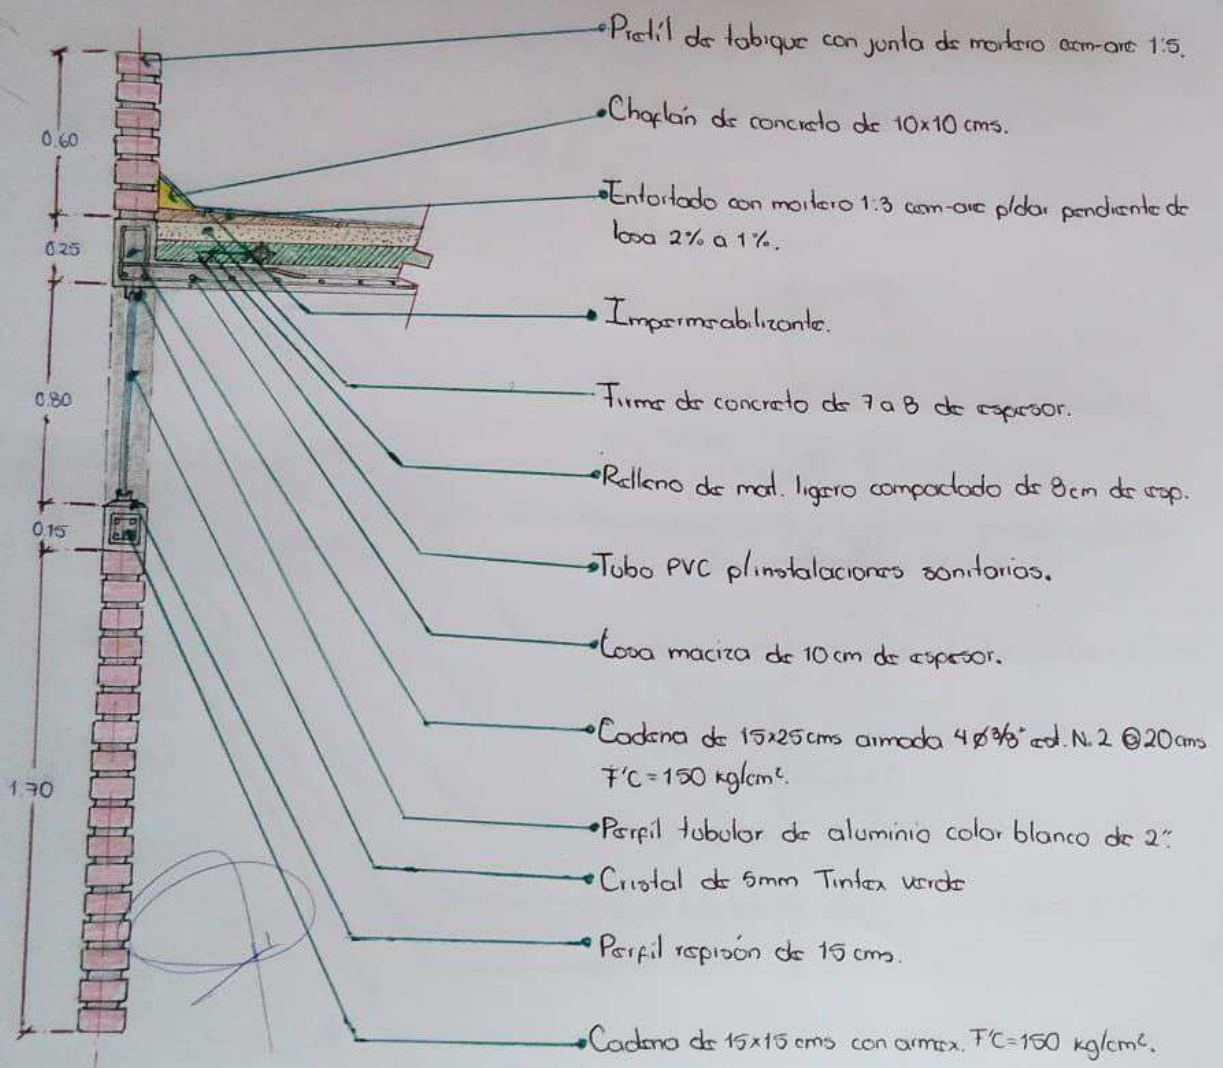 0.60
0.25
0.80
0.15
1.70
Pretil de tabique con junta de mortero cem-are 1:5.
Chaflán de concreto de 10x10 cms.
Entortado con mortero 1:3 cem-are p/dar pendiente de
losa 2% a 1%.
Impermeabilizante.
Firme de concreto de 7 a 8 de espesor.
Relleno de mat. ligero compactado de 8cm de esp.
Tubo PVC p/instalaciones sanitarias.
Losa maciza de 10 cm de espesor.
Cadena de 15x25cms armada 4 Ø 3/8" est. N. 2 @20cms
F'C=150 kg/cm².
Perfil tubular de aluminio color blanco de 2".
Cristal de 5mm Tintex verde
Perfil repisón de 15 cms.
Cadena de 15x15 cms con armex. F'C=150 kg/cm².